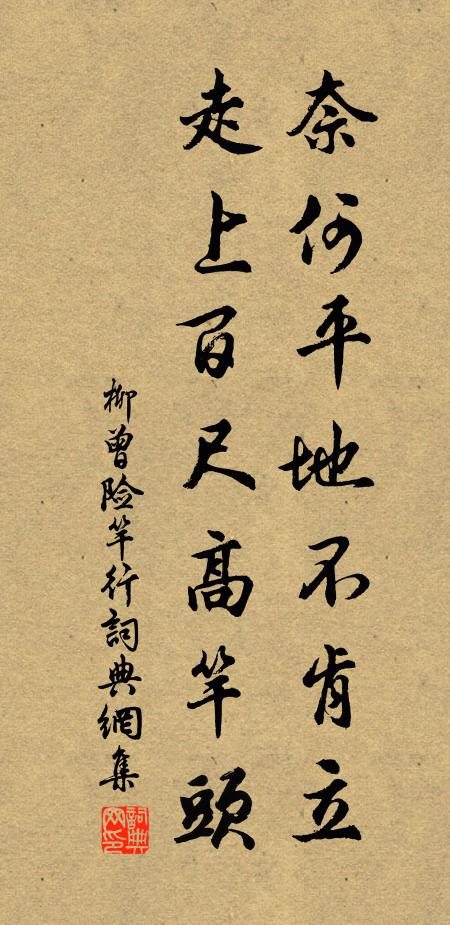 奈何平地不肯立
走上百尺高竿頭
柳曾险竿行詞典網集
詞典網印